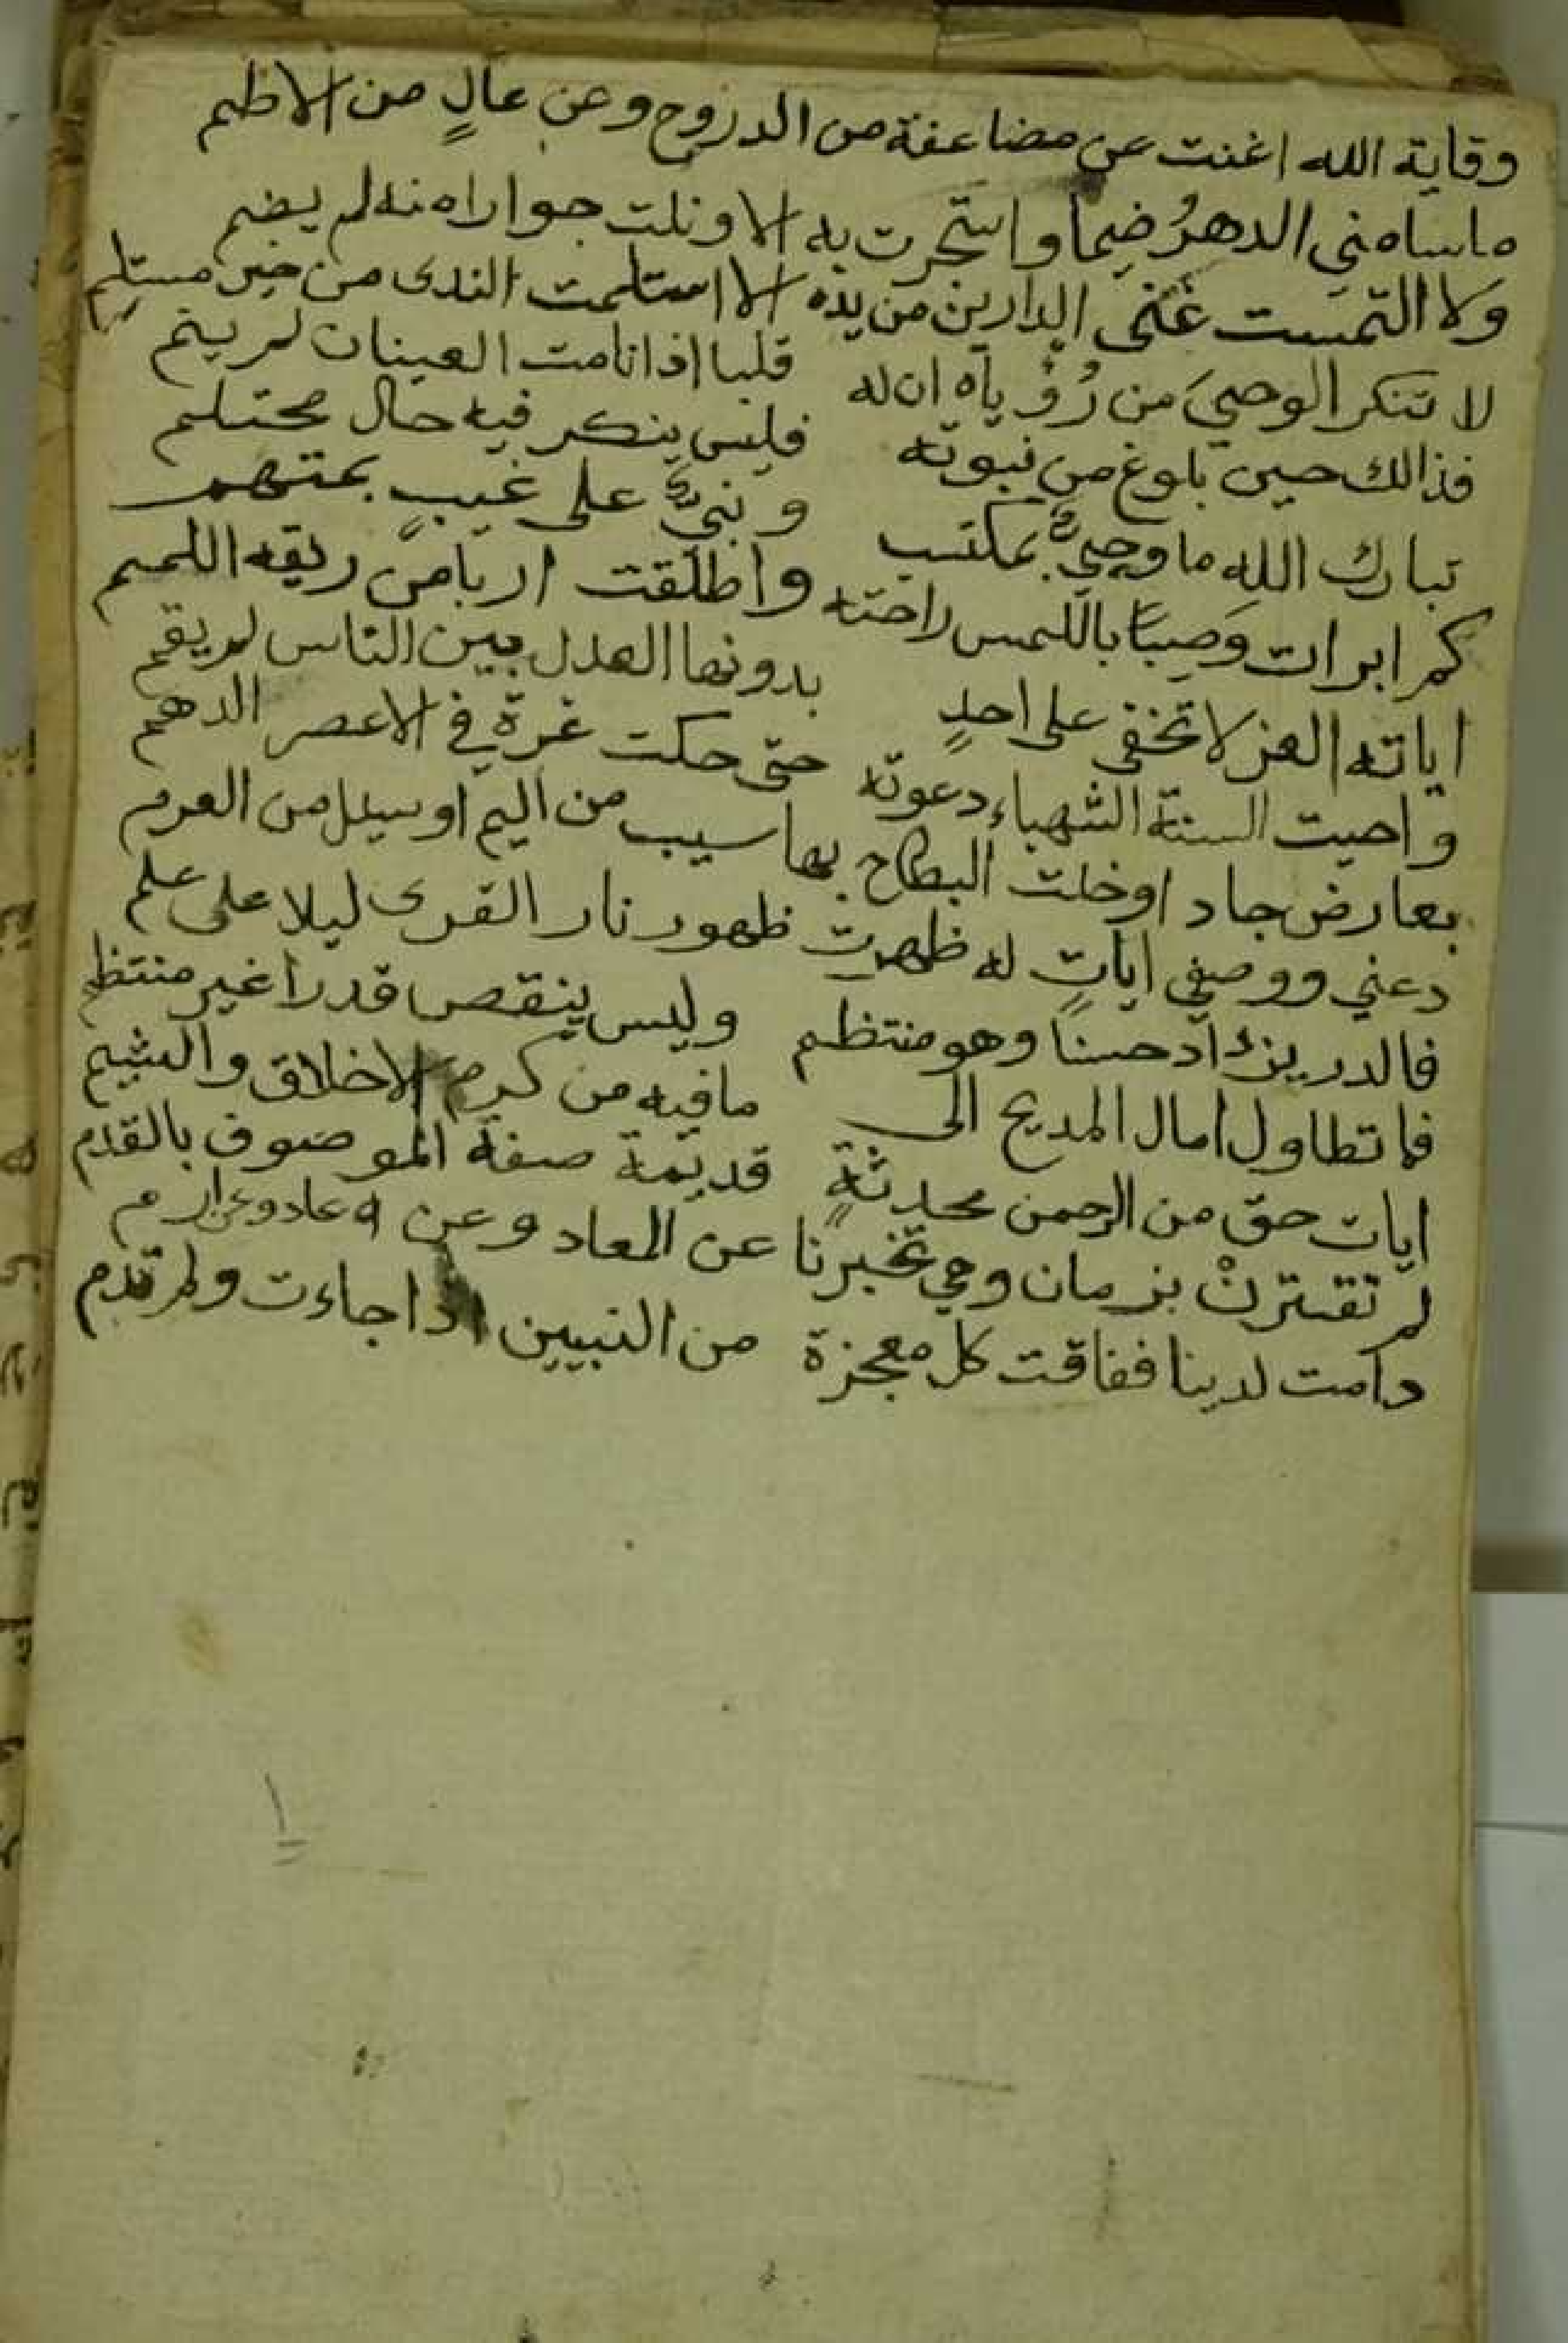 وقاية الله اغنت عن مضاعفة من الدروع وعن عالٍ من الاطم
ماسامني الدهرُ ضيما واستجرت به الا ونلت جوارا منه لم يضم
وَلا التمست غنى الدارين من يده الا استلمت الندى من خير مستلم
لا تنكر الوحيَ من رُؤْياه ان له قلبا اذا نامت العينان لم ينم
فذالك حين بلوغ من نبوته فليس ينكر فيه حال محتلم
تبارك الله ما وحيٌ بمكتسب و نبيٌّ على غيبٍ بمتهم
كم ابرات وَصِبًا باللمس راحته واطلقت اربا من ربقه اللمم
اياته الغر لا تخفى على احدٍ بدونها العدل بين الناس لم يقم
واحيت السنة الشهباء دعوته حتى حكت غرة في الاعصر الدهم
بعارض جاد اوخلت البطاح بها سيب من اليم اوسيل من العرم
دعني ووصفي اياتٍ له ظهرت ظهور نار القرى ليلا على علم
فالدر يزداد حسنًا وهو منتظم وليس ينقص قدرا غير منتظم
فما تطاول امال المديح الى مافيه من كرم الاخلاق والشيم
ايات حق من الرحمن محدثةٍ قديمة صفة الموصوف بالقدم
لم تقترنْ بزمان وهي تخبرنا عن المعاد وعن عاد وعن ارم
دامت لدينا ففاقت كل معجزة من النبيين اذا جاءت ولم تدم